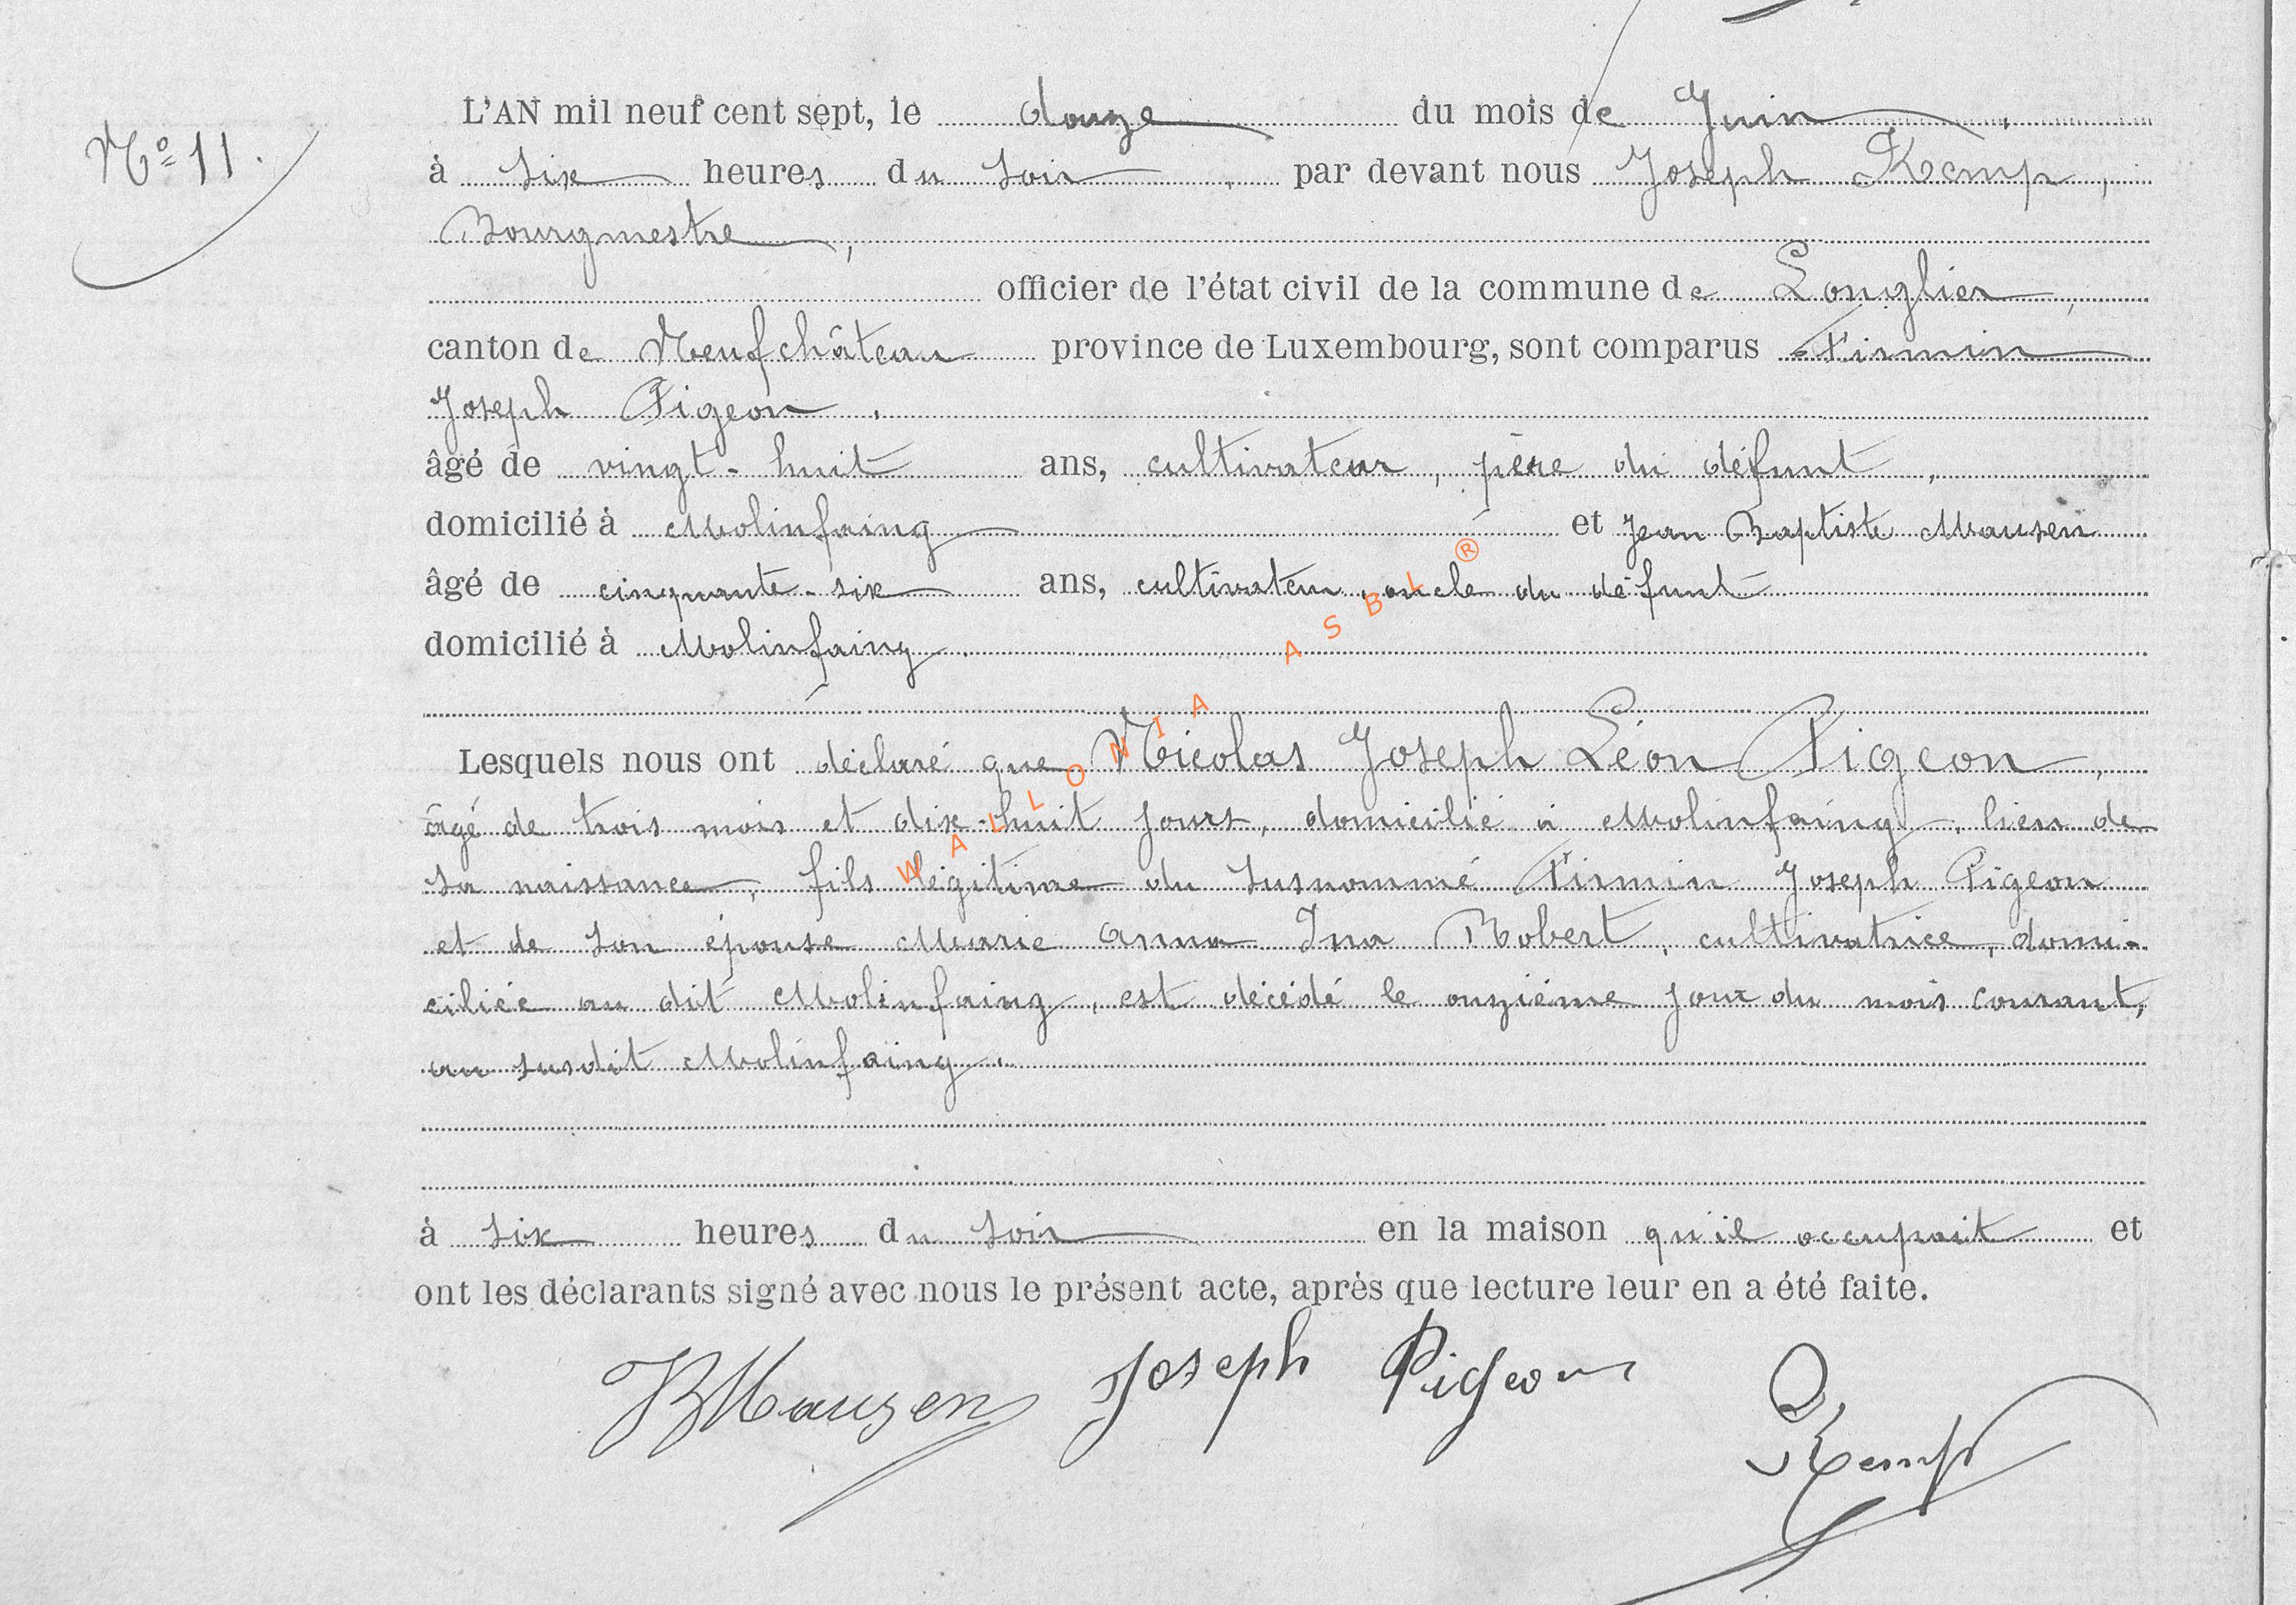 N° 11.
L'AN mil neuf cent sept, le douze du mois de Juin,
à six heures du soir, par devant nous Joseph Kemp,
Bourgmestre,
officier de l'état civil de la commune de Longlier,
canton de Neufchâteau province de Luxembourg, sont comparus Firmin
Joseph Pigeon.
âgé de vingt-huit ans, cultivateur, père du défunt,
domicilié à Molinfaing et Jean Baptiste Mausen
âgé de cinquante-six ans, cultivateur, oncle du défunt
domicilié à Molinfaing.
Lesquels nous ont déclaré que Nicolas Joseph Léon Pigeon,
âgé de trois mois et dix-huit jours, domicilié à Molinfaing, lieu de
sa naissance, fils légitime du susnommé Firmin Joseph Pigeon
et de son épouse Marie Anna Ina Robert, cultivatrice, domi-
ciliée au dit Molinfaing, est décédé le onzième jour du mois courant,
au susdit Molinfaing.
à six heures du soir en la maison qu'il occupait et
ont les déclarants signé avec nous le présent acte, après que lecture leur en a été faite.
JBMausen Joseph Pigeon Kemp
WALLONIA ASBL ®